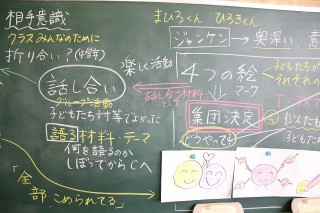 相手意識
クラスみんなのために
折り合い？
話し合い
グループ活動
子どもたち対等でよかった
語る材料・テーマ
何を語るのか
しぼってからCへ
「全
部こめられてる」
楽しく活動
まひろくん ひろきくん
ジャンケン→奥深い 意
4つの絵
マーク
話し合う材料
として
集団決定
どうやってる
子どもたちが
それぞれの